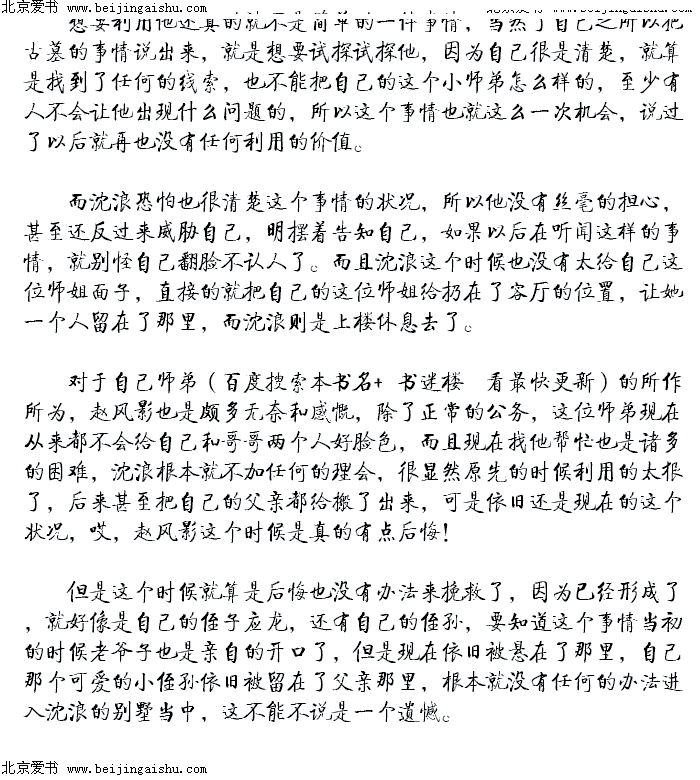 北京爱书 www.beijingaishu.com 北京爱书 www.beijingaishu.com
想要利用他还真的就不是简单的一件事情，当然了自己之所以把
古墓的事情说出来，就是想要试探试探他，因为自己很是清楚，就算
是找到了任何的线索，也不能把自己的这个小师弟怎么样的，至少有
人不会让他出现什么问题的，所以这个事情也就这么一次机会，说过
了以后就再也没有任何利用的价值。
而沈浪恐怕也很清楚这个事情的状况，所以他没有丝毫的担心，
甚至还反过来威胁自己，明摆着告知自己，如果以后在听闻这样的事
情，就别怪自己翻脸不认人了。而且沈浪这个时候也没有太给自己这
位师姐面子，直接的就把自己的这位师姐给扔在了客厅的位置，让她
一个人留在了那里，而沈浪则是上楼休息去了。
对于自己师弟（百度搜索本书名+ 书迷楼 看最快更新）的所作
所为，赵风影也是颇多无奈和感慨，除了正常的公务，这位师弟现在
从来都不会给自己和哥哥两个人好脸色，而且现在找他帮忙也是诸多
的困难，沈浪根本就不加任何的理会，很显然原先的时候利用的太狠
了，后来甚至把自己的父亲都给搬了出来，可是依旧还是现在的这个
状况，哎，赵风影这个时候是真的有点后悔！
但是这个时候就算是后悔也没有办法来挽救了，因为已经形成了
，就好像是自己的侄子应龙，还有自己的侄孙，要知道这个事情当初
的时候老爷子也是亲自的开口了，但是现在依旧被悬在了那里，自己
那个可爱的小侄孙依旧被留在了父亲那里，根本就没有任何的办法进
入沈浪的别墅当中，这不能不说是一个遗憾。
北京爱书 www.beijingaishu.com